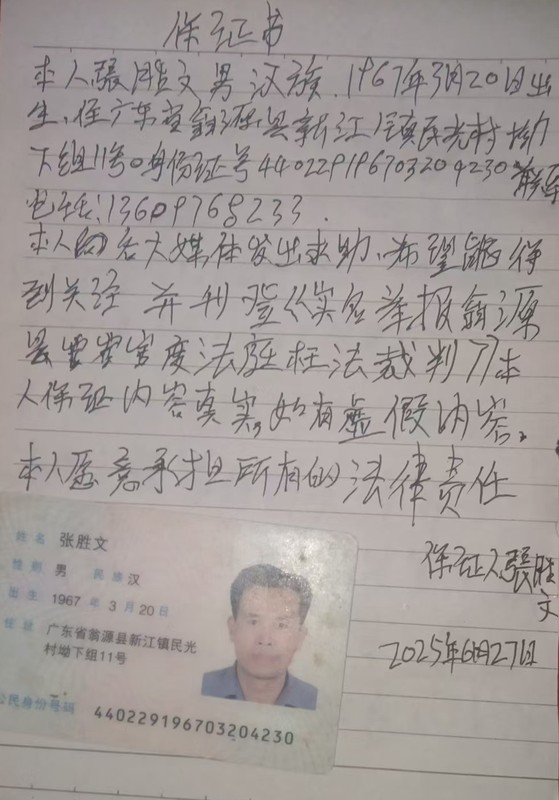 保证书
本人張胜文男汉族.1967年3月20日出
生.住广东省翁源县新江镇民光村坳
下组11号。身份证号440229196703204230联系
电话:13609768233.
本人向各大媒体发出求助.希望能得
到关注 并刊登《实名举报翁源
县 官度法庭枉法裁判》本
人保证内容真实,如有虚假内容。
本人愿意承担所有的法律责任
保证人張胜
文
2025年6月27日
姓名 张胜文
性别 男 民族 汉
出生 1967 年 3 月 20 日
住址 广东省翁源县新江镇民光
村坳下组11号
公民身份号码 440229196703204230